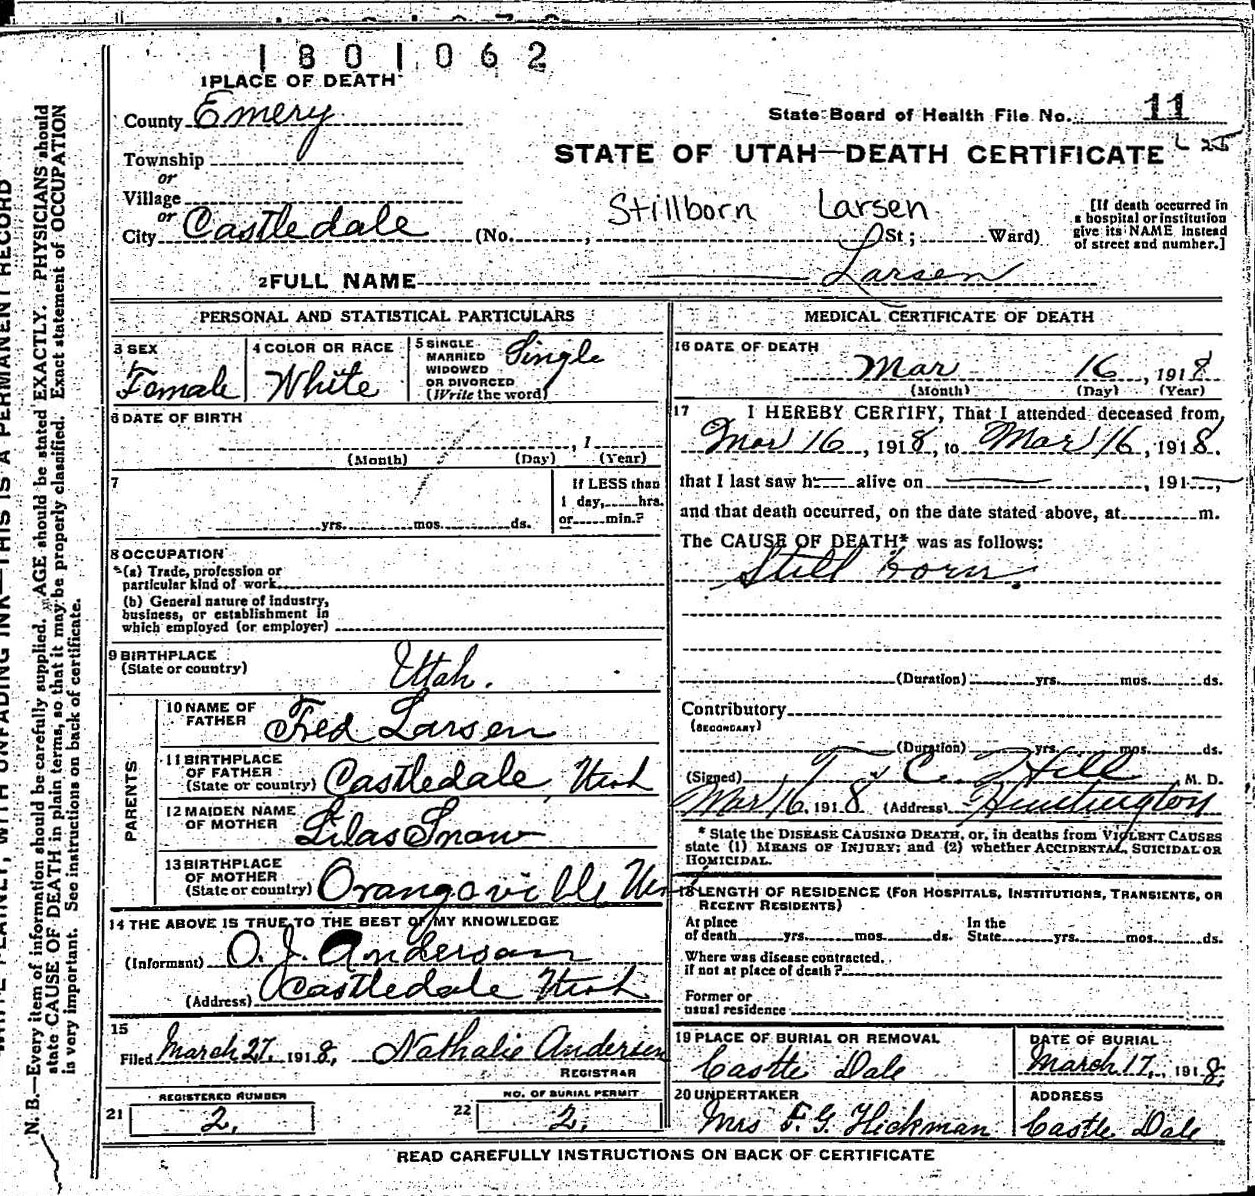 1801062
1 PLACE OF DEATH
County Emery
State Board of Health File No. 11
Township
or
STATE OF UTAH—DEATH CERTIFICATE
Village
or
City Castledale (No. , St; Ward)
Stillborn Larsen
[If death occurred in
a hospital or institution
give its NAME instead
of street and number.]
2 FULL NAME Larsen
PERSONAL AND STATISTICAL PARTICULARS
3 SEX
Female
4 COLOR OR RACE
White
5 SINGLE
MARRIED
WIDOWED
OR DIVORCED
(Write the word)
Single
6 DATE OF BIRTH
, 1
(Month) (Day) (Year)
7
yrs. mos. ds.
If LESS than
1 day, hrs.
or min.?
8 OCCUPATION
(a) Trade, profession or
particular kind of work
(b) General nature of industry,
business, or establishment in
which employed (or employer)
9 BIRTHPLACE
(State or country) Utah.
PARENTS
10 NAME OF
FATHER Fred Larsen
11 BIRTHPLACE
OF FATHER
(State or country) Castledale, Utah
12 MAIDEN NAME
OF MOTHER Lilas Snow
13 BIRTHPLACE
OF MOTHER
(State or country) Orangeville Utah
14 THE ABOVE IS TRUE TO THE BEST OF MY KNOWLEDGE
(Informant) O. J. Anderson
(Address) Castledale Utah
15
Filed March 27, 1918, Nathalie Andersen
REGISTRAR
REGISTERED NUMBER
21 2.
NO. OF BURIAL PERMIT
22 2.
MEDICAL CERTIFICATE OF DEATH
16 DATE OF DEATH
Mar 16, 1918
(Month) (Day) (Year)
17 I HEREBY CERTIFY, That I attended deceased from
Mar 16, 1918, to Mar 16, 1918.
that I last saw h alive on , 191 ,
and that death occurred, on the date stated above, at m.
The CAUSE OF DEATH* was as follows:
Still born.
(Duration) yrs. mos. ds.
Contributory
(SECONDARY)
(Duration) yrs. mos. ds.
(Signed) C. Hill, M. D.
Mar 16, 1918 (Address) Huntington
* State the DISEASE CAUSING DEATH, or, in deaths from VIOLENT CAUSES
state (1) MEANS OF INJURY; and (2) whether ACCIDENTAL, SUICIDAL OR
HOMICIDAL.
18 LENGTH OF RESIDENCE (FOR HOSPITALS, INSTITUTIONS, TRANSIENTS, OR
RECENT RESIDENTS)
At place
of death yrs. mos. ds.
In the
State yrs. mos. ds.
Where was disease contracted,
if not at place of death?
Former or
usual residence
19 PLACE OF BURIAL OR REMOVAL
Castle Dale
DATE OF BURIAL
March 17, 1918,
20 UNDERTAKER
Mrs F. G. Hickman
ADDRESS
Castle Dale
READ CAREFULLY INSTRUCTIONS ON BACK OF CERTIFICATE
WRITE PLAINLY, WITH UNFADING INK—THIS IS A PERMANENT RECORD
N. B.—Every item of information should be carefully supplied. AGE should be stated EXACTLY. PHYSICIANS should
state CAUSE OF DEATH in plain terms, so that it may be properly classified. Exact statement of OCCUPATION
is very important. See instructions on back of certificate.